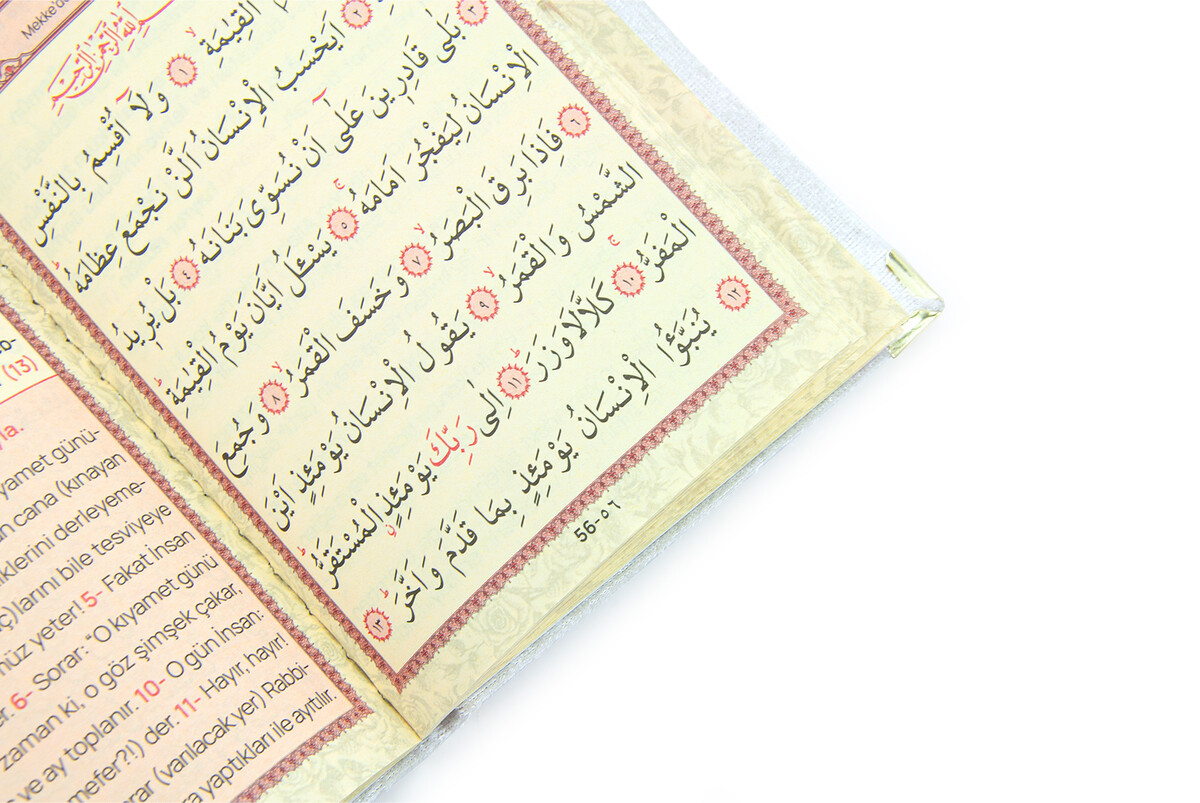 Mekke'de
اللّٰهِ الرَّحْمٰنِ الرَّحٖيمِ
الْقِيٰمَةِۙ ١ وَلَٓا اُقْسِمُ بِالنَّفْسِ
٢ اَيَحْسَبُ الْاِنْسَانُ اَلَّنْ نَجْمَعَ عِظَامَهُؕ
٣ بَلٰى قَادِرٖينَ عَلٰٓى اَنْ نُسَوِّىَ بَنَانَهُ ٤ بَلْ يُرٖيدُ
الْاِنْسَانُ لِيَفْجُرَ اَمَامَهُۚ ٥ يَسْـَٔلُ اَيَّانَ يَوْمُ الْقِيٰمَةِؕ
٦ فَاِذَا بَرِقَ الْبَصَرُۙ ٧ وَخَسَفَ الْقَمَرُۙ ٨ وَجُمِعَ
الشَّمْسُ وَالْقَمَرُۙ ٩ يَقُولُ الْاِنْسَانُ يَوْمَئِذٍ اَيْنَ
الْمَفَرُّۚ ١٠ كَلَّا لَا وَزَرَؕ ١١ اِلٰى رَبِّكَ يَوْمَئِذٍ الْمُسْتَقَرُّؕ
١٢ يُنَبَّؤُا الْاِنْسَانُ يَوْمَئِذٍ بِمَا قَدَّمَ وَاَخَّرَؕ ١٣
56-٥٦
(13)
yla.
yamet günü-
n cana (kınayan
iklerini derleyeme-
ç)larını bile tesviyeye
nüz yeter! 5- Fakat İnsan
r. 6- Sorar: "O kıyamet günü
zaman ki, o göz şimşek çakar,
ve ay toplanır. 10- O gün İnsan:
mefer?!) der. 11- Hayır, hayır!
rar (varılacak yer) Rabbi-
ra yaptıkları ile ayıtılır.